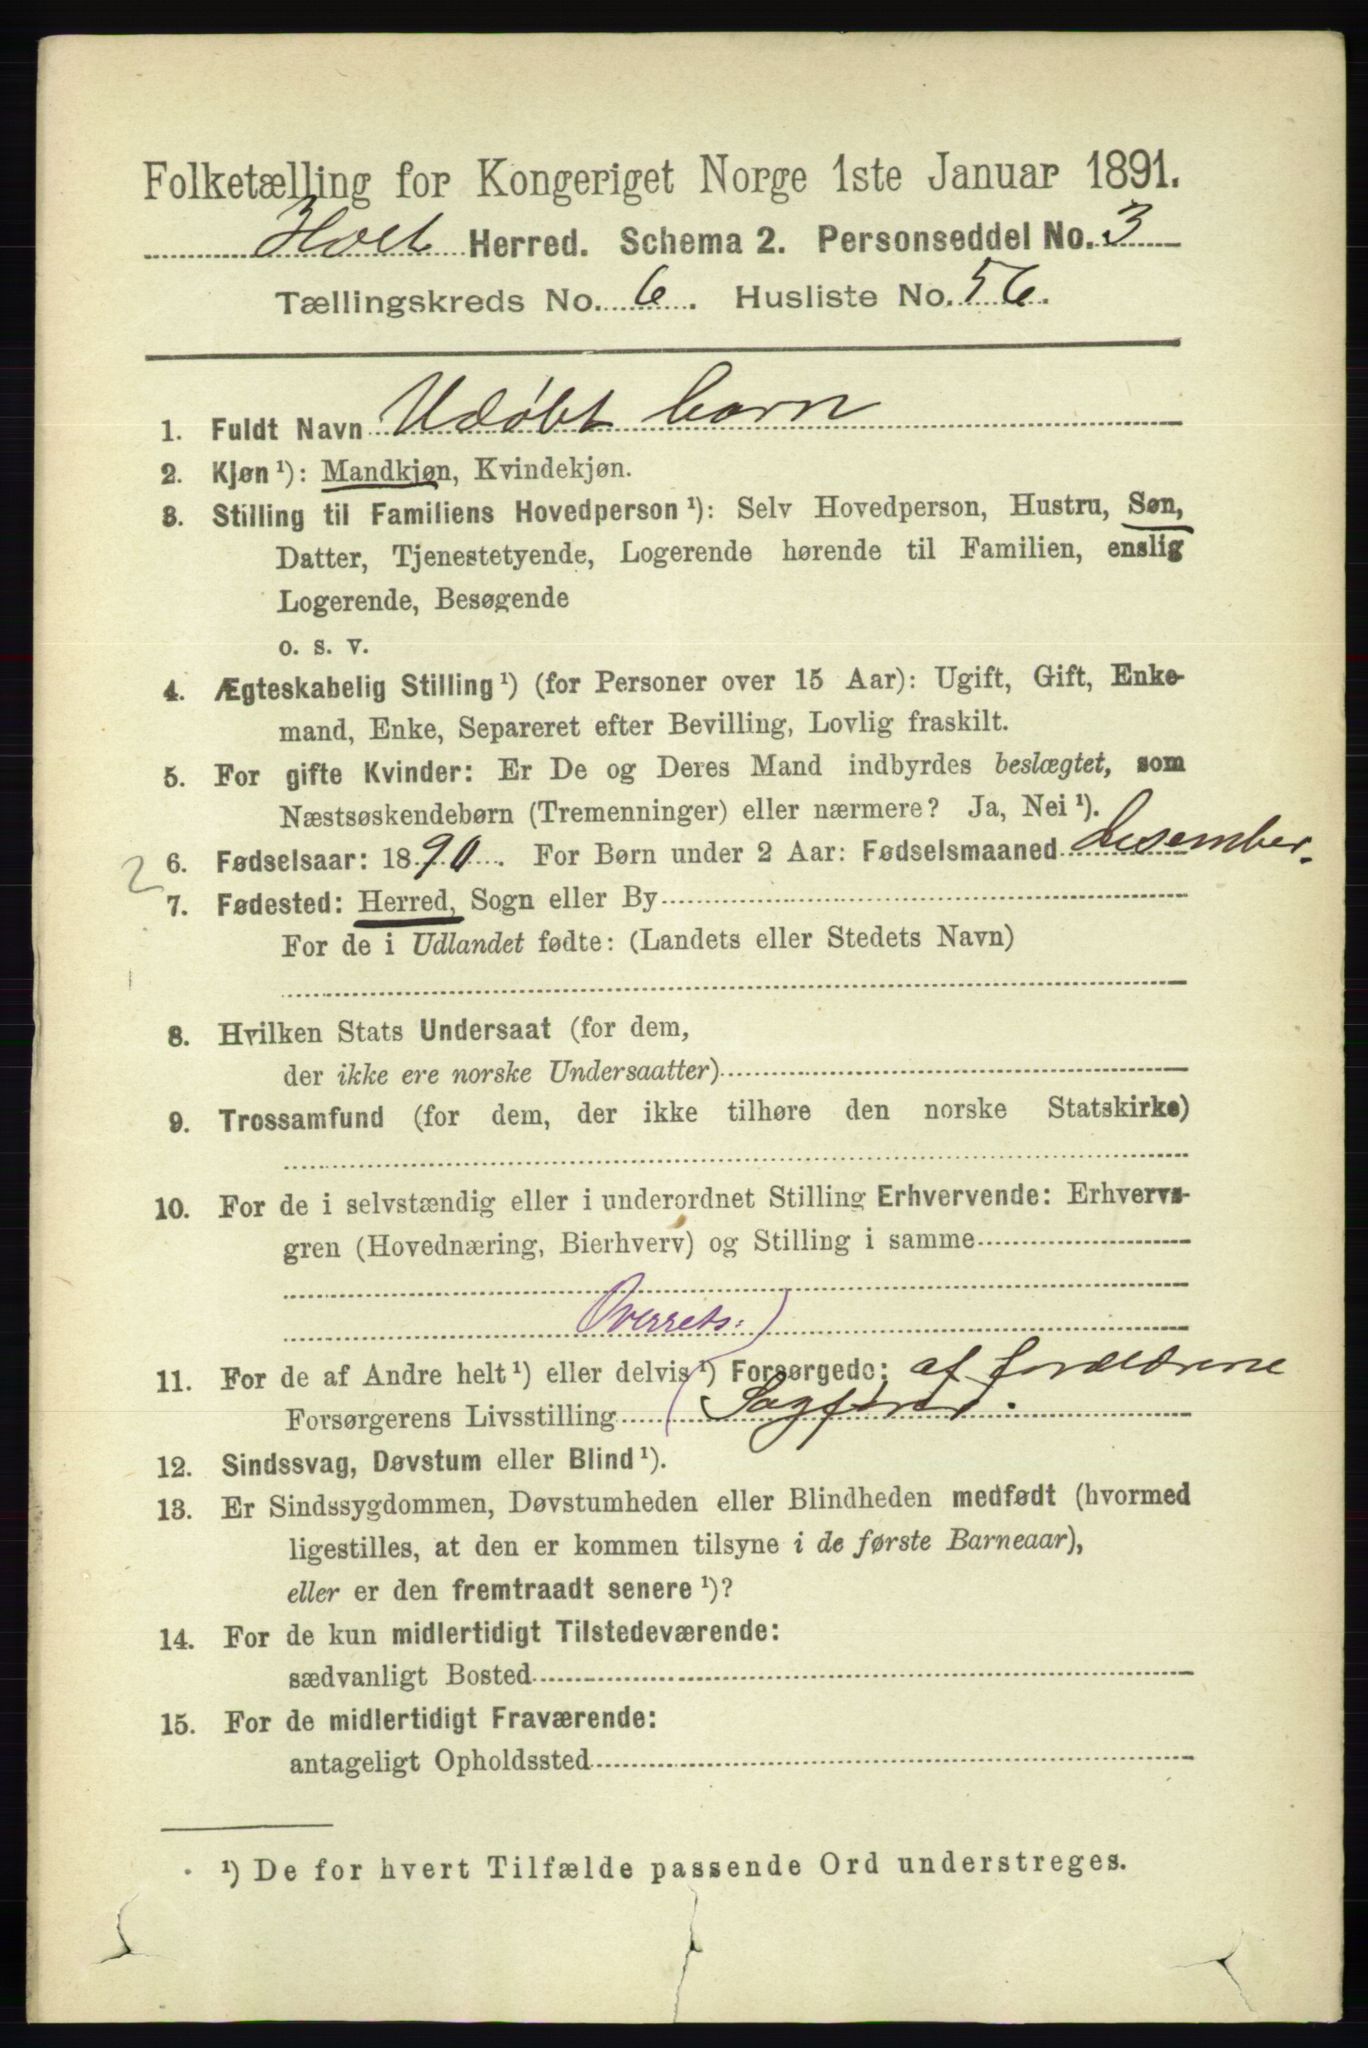 Folketælling for Kongeriget Norge 1ste Januar 1891.
Holt Herred. Schema 2. Personseddel No. 3
Tællingskreds No. 6. Husliste No. 56.
1. Fuldt Navn Udøbt barn
2. Kjøn ¹): Mandkjøn, Kvindekjøn.
3. Stilling til Familiens Hovedperson ¹): Selv Hovedperson, Hustru, Søn,
Datter, Tjenestetyende, Logerende hørende til Familien, enslig
Logerende, Besøgende
o. s. v.
4. Ægteskabelig Stilling ¹) (for Personer over 15 Aar): Ugift, Gift, Enke-
mand, Enke, Separeret efter Bevilling, Lovlig fraskilt.
5. For gifte Kvinder: Er De og Deres Mand indbyrdes beslægtet, som
Næstsøskendebørn (Tremenninger) eller nærmere? Ja, Nei ¹).
2 6. Fødselsaar: 1890. For Børn under 2 Aar: Fødselsmaaned desember.
7. Fødested: Herred, Sogn eller By
For de i Udlandet fødte: (Landets eller Stedets Navn)
8. Hvilken Stats Undersaat (for dem,
der ikke ere norske Undersaatter)
9. Trossamfund (for dem, der ikke tilhøre den norske Statskirke)
10. For de i selvstændig eller i underordnet Stilling Erhvervende: Erhvervs-
gren (Hovednæring, Bierhverv) og Stilling i samme
Overrets:)
11. For de af Andre helt ¹) eller delvis ¹) Forsørgede: af forældrene
Forsørgerens Livsstilling ( Sagfører.
12. Sindssvag, Døvstum eller Blind ¹).
13. Er Sindssygdommen, Døvstumheden eller Blindheden medfødt (hvormed
ligestilles, at den er kommen tilsyne i de første Barneaar),
eller er den fremtraadt senere ¹)?
14. For de kun midlertidigt Tilstedeværende:
sædvanligt Bosted
15. For de midlertidigt Fraværende:
antageligt Opholdssted
¹) De for hvert Tilfælde passende Ord understreges.